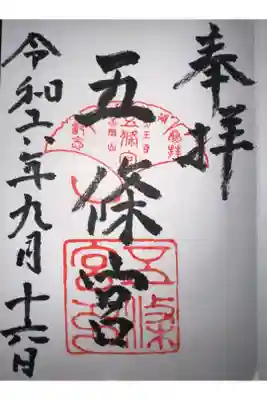 奉拝
五條宮
令和五年九月十六日
五條
宮印
記念